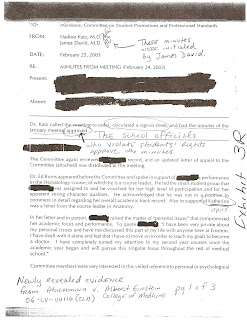 TO: Members, Committee on Student Promotions and Professional Standards
FROM: Nadine Katz, M.D.
James David, M.D.
These minutes were initialed by James David.
DATE: February 25, 2003
RE: MINUTES FROM MEETING (February 24, 2003)
Present:
Absent:
Dr. Katz called the meeting to order, circulated a sign-in sheet, and had the minutes of the
January meeting approved.
The school officials
who violate students' rights
approve the minutes.
The Committee again reviewed record, and an updated letter of appeal to the
Committee was distributed at the meeting.
Dr. Ed Burns appeared before the Committee and spoke in support of performance
in the Hematology course, of which he is a course leader. He led the small student group that
was assigned to and he vouched for her high level of participation and for her
apparent strong character qualities. He acknowledged that he was not in a position
to comment in detail regarding her overall academic record. Also in support of Katherine
was a letter from the course leader in Anatomy.
In her letter and in person, raised the matter of "personal issues" that compromised
her academic focus and performance. To quote "I have been very private about
my personal issues and have not discussed this part of my life with anyone here at Einstein.
I have dealt with it alone and feel that I have to move on in order to reach my goal to become
a doctor. I have completely turned my attention to my second year courses since the
academic year began and will pursue this singular focus throughout the rest of medical
school."
Committee members were very interested in this veiled reference to personal or psychological
Newly revealed evidence
from v. Albert Einstein
College of Medicine
pg 1 of 3